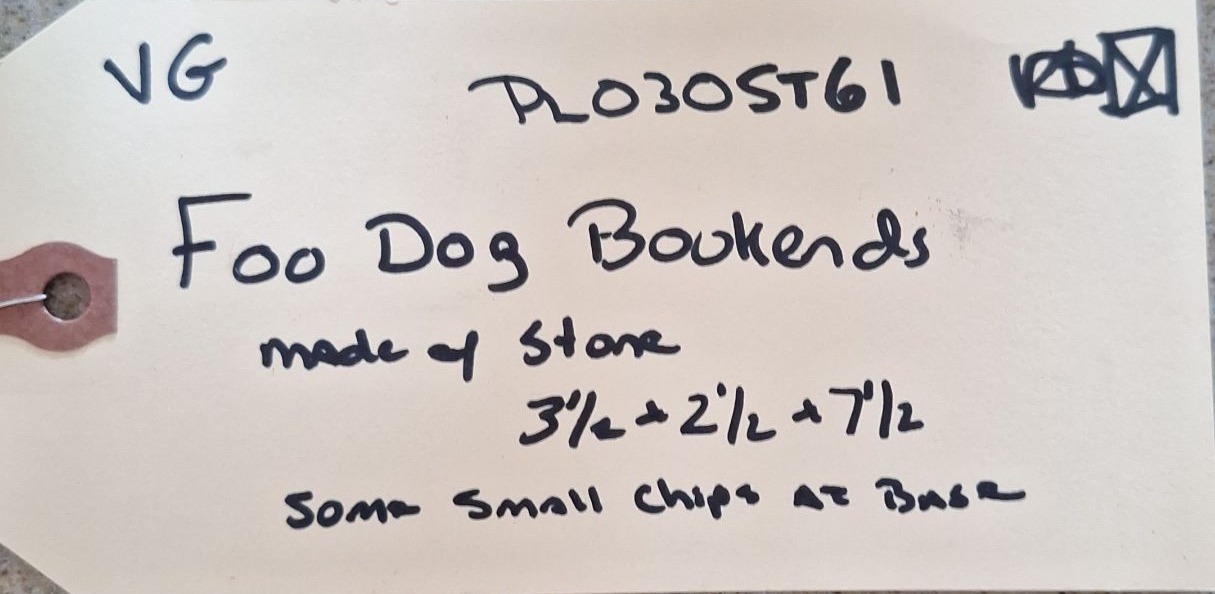 VG PL030ST61
Foo Dog Bookends
made of Stone
3 1/2 x 2 1/2 x 7 1/2
Some Small Chips at Base